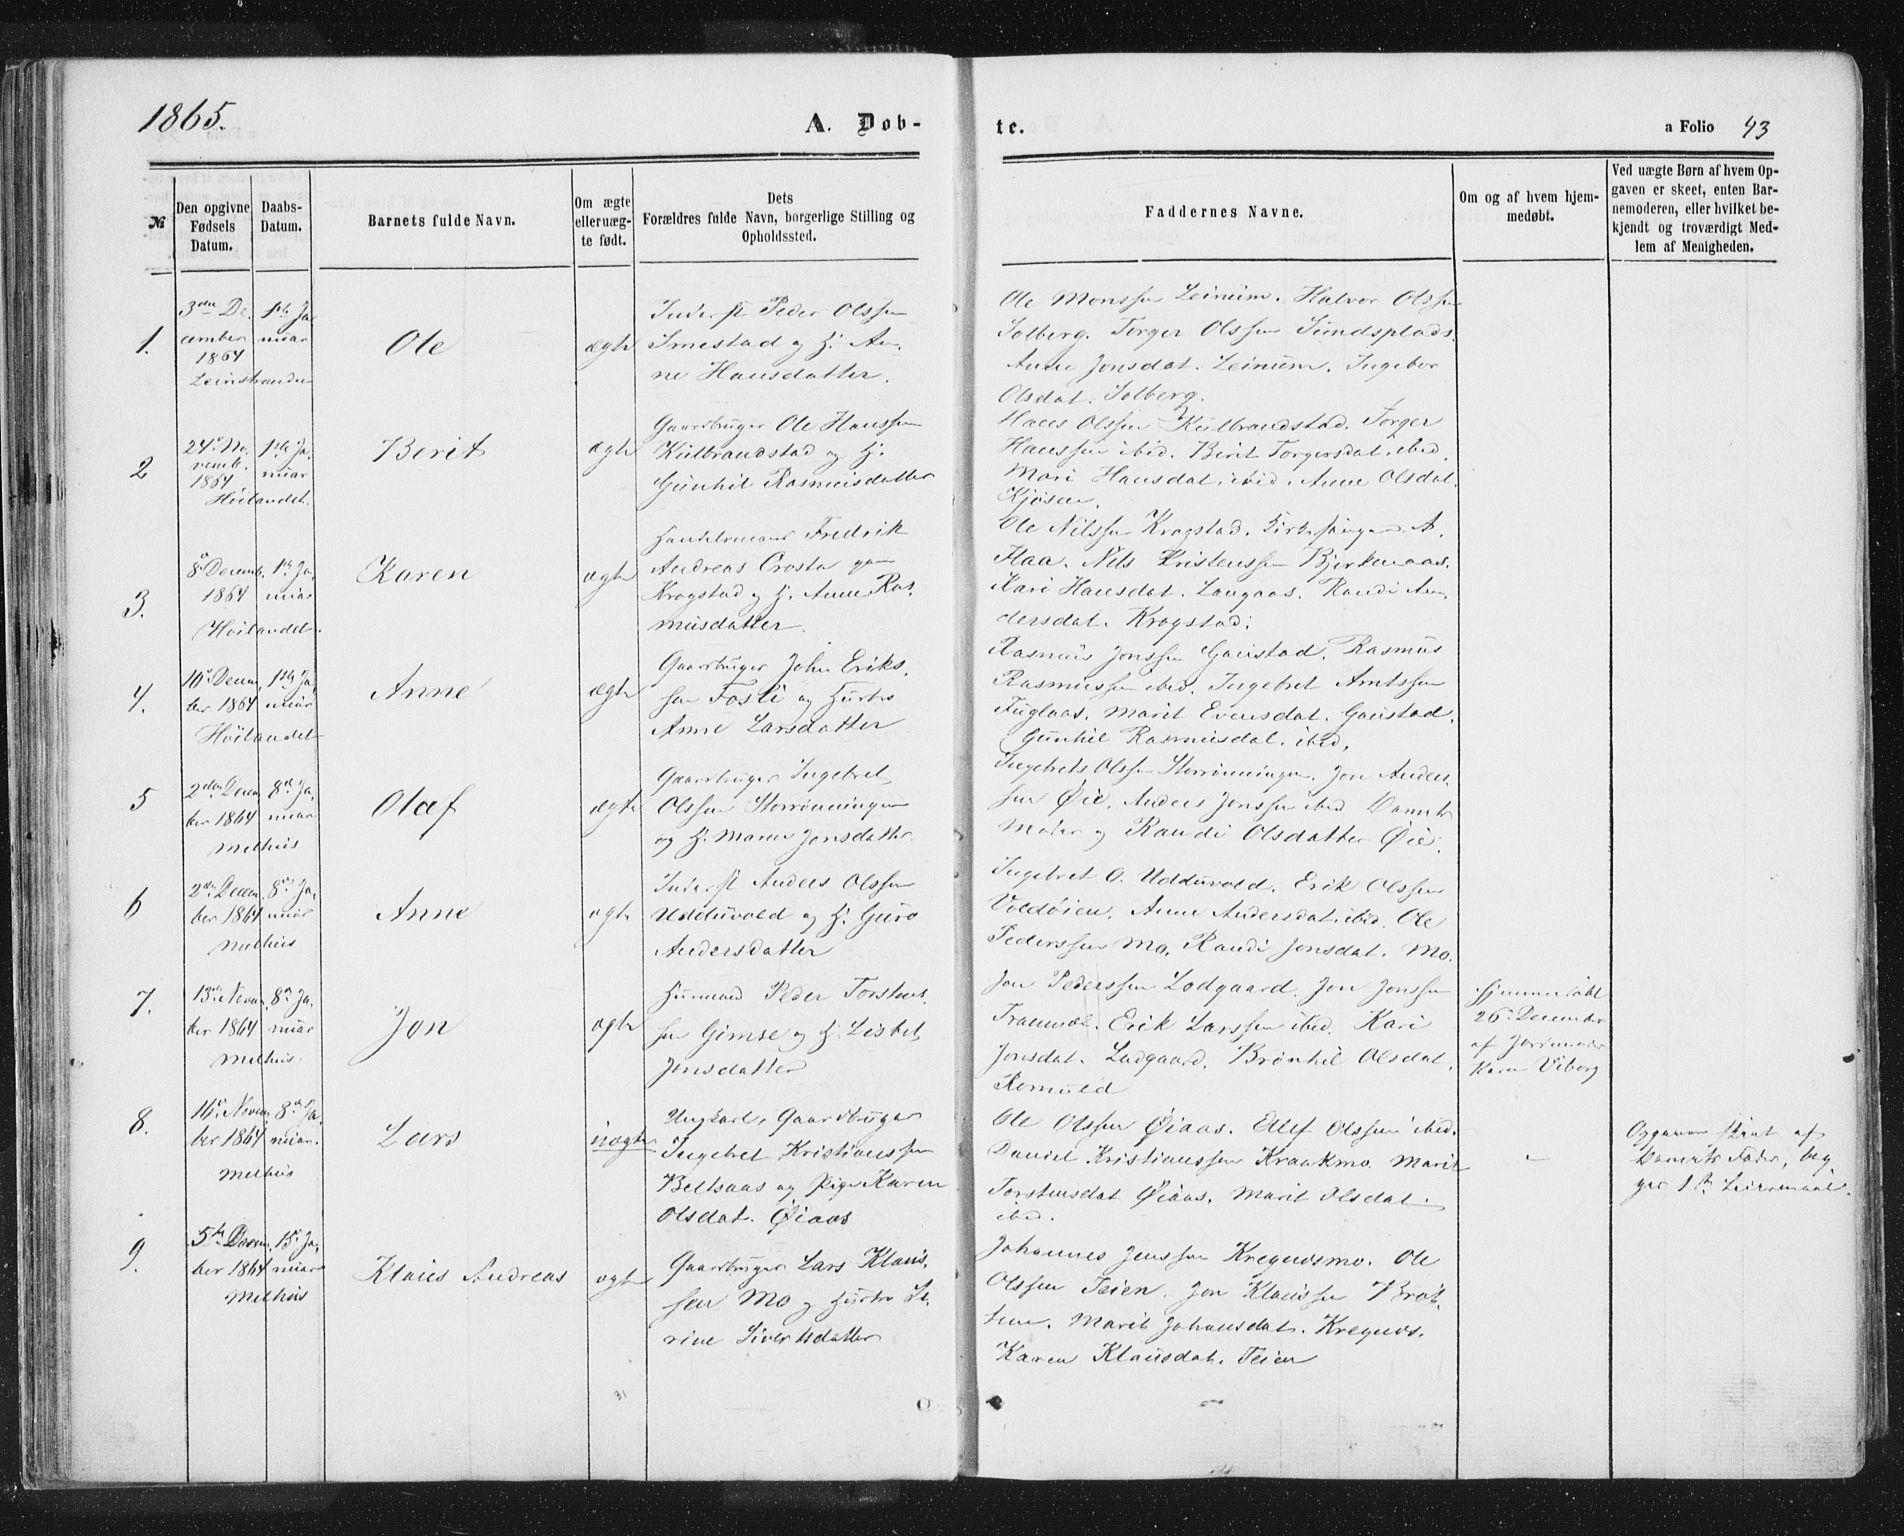 1865.
A. Døb-
te.
a Folio 43
№
Den opgivne Fødsels Datum.
Daabs-Datum.
Barnets fulde Navn.
Om ægte elleruæg-te født.
Dets Forældres fulde Navn, borgerlige Stilling og Opholdssted.
Faddernes Navne.
Om og af hvem hjem-medøbt.
Ved uægte Børn af hvem Op-gaven er skeet, enten Bar-nemoderen, eller hvilket be-kjendt og troværdigt Med-lem af Menigheden.
1.
3die De-
cember
1864
Leinstranden
1ste Ja-
nuar
Ole
ægte
Inderst Peder Olssen
og H. An-
ne Hansdatter.
Ole Monssen Leinum. Halvor Olssen
Solberg. Torger Olssen Sundsplads.
Anne Jonsdat. Leinum. Ingebor
Olsdat. Solberg.
2
24. No-
vemb.
1864
Høilandet.
1ste Ja-
nuar
Berit
ægte
Gaardbruger Ole Hanssen
Kulbrandstad og H.
Gunhil Rasmusdatter
Hans Olssen Kulbrandstad. Torger
Hanssen ibid. Berit Torgersdat. ibid.
Mari Hansdat. ibid. Anne Olsdat.
Kjøsen.
3.
8 Decemb.
1864
Høilandet.
1ste Ja-
nuar
Karen
ægte
Handelsmand Fredrik
Andreas Crosta
Krogstad og H. Anne Ras-
musdatter.
Ole Nilssen Krogstad. Kirkesanger A.
Flaa. Nils Kristenssen Bjerkenaas.
Kari Hansdat. Langaas. Randi An-
dersdat. Krogstad.
4.
16 Decem-
ber 1864
Høilandet
1ste Ja-
nuar
Anne
ægte
Gaardbruger John Eriks-
sen Fosli og Hustro
Anne Larsdatter
Rasmus Jonssen Gaustad. Rasmus
Rasmussen ibid. Ingebret Arntssen
Fuglaas. Marit Evensdat. Gaustad.
Gunhil Rasmusdat. ibid.
5
2den Decem-
ber 1864
Melhus
8de Ja-
nuar
Olaf
ægte
Gaardbruger Ingebret
Olssen Storrønningen
og H. Maren Jonsdatter
Ingebrets Olssen Storrønningen. Jon Anders-
sen Øie. Anders Jonssen ibid. Barnets
Moder og Randi Olsdatter Øie.
6
2den Decem-
ber 1864
Melhus
8de Ja-
nuar
Anne
ægte
Inderst Anders Olssen
Udduvold og H. Guro
Andersdatter
Ingebret O. Udduvold. Erik Olssen
Voldøien. Anne Andersdat. ibid. Ole
Pederssen Mo. Randi Jonsdat. Mo.
7.
13de Novem-
ber 1864
Melhus.
8de Ja-
nuar
Jon
ægte
Husmand Peder Torstens-
sen Gimse og H. Lisbet
Jonsdatter
Jon Pederssen Lodgaard. Jon Jonssen
Erik Larssen ibid. Kari
Jonsdat. Lodgaard. Brønhil Olsdat.
Hjemmedøbt
26. December
af Jordmoder
Karen Viborg
8.
16de Novem-
ber 1864
Melhus
8de Ja-
nuar.
Lars
uægte
Ungkarl, Gaardbruger
Ingebret Kristianssen
og Pige Karen
Olsdat. Øiaas
Ole Olssen Øiaas. Ellef Olssen ibid.
Daniel Kristianssen Kraakmo. Marit
Torstensdat Øiaas. Marit Olsdat.
ibid.
Opgaven skeet af
Barnets Fader, beg-
ges 1ste Leiermaal.
9.
5te Decem-
ber 1864
Melhus
15. Ja-
nuar
Klaus Andreas
ægte
Gaardbruger Lars Klaus-
sen Mo og Hustro Se-
rine Sivertsdatter
Johannes Jenssen Kregnesmo. Ole
Olssen Teien. Jon Klaussen Brat-
Marit Johansdat. Kregnes.
Karen Klausdat. Teien
31